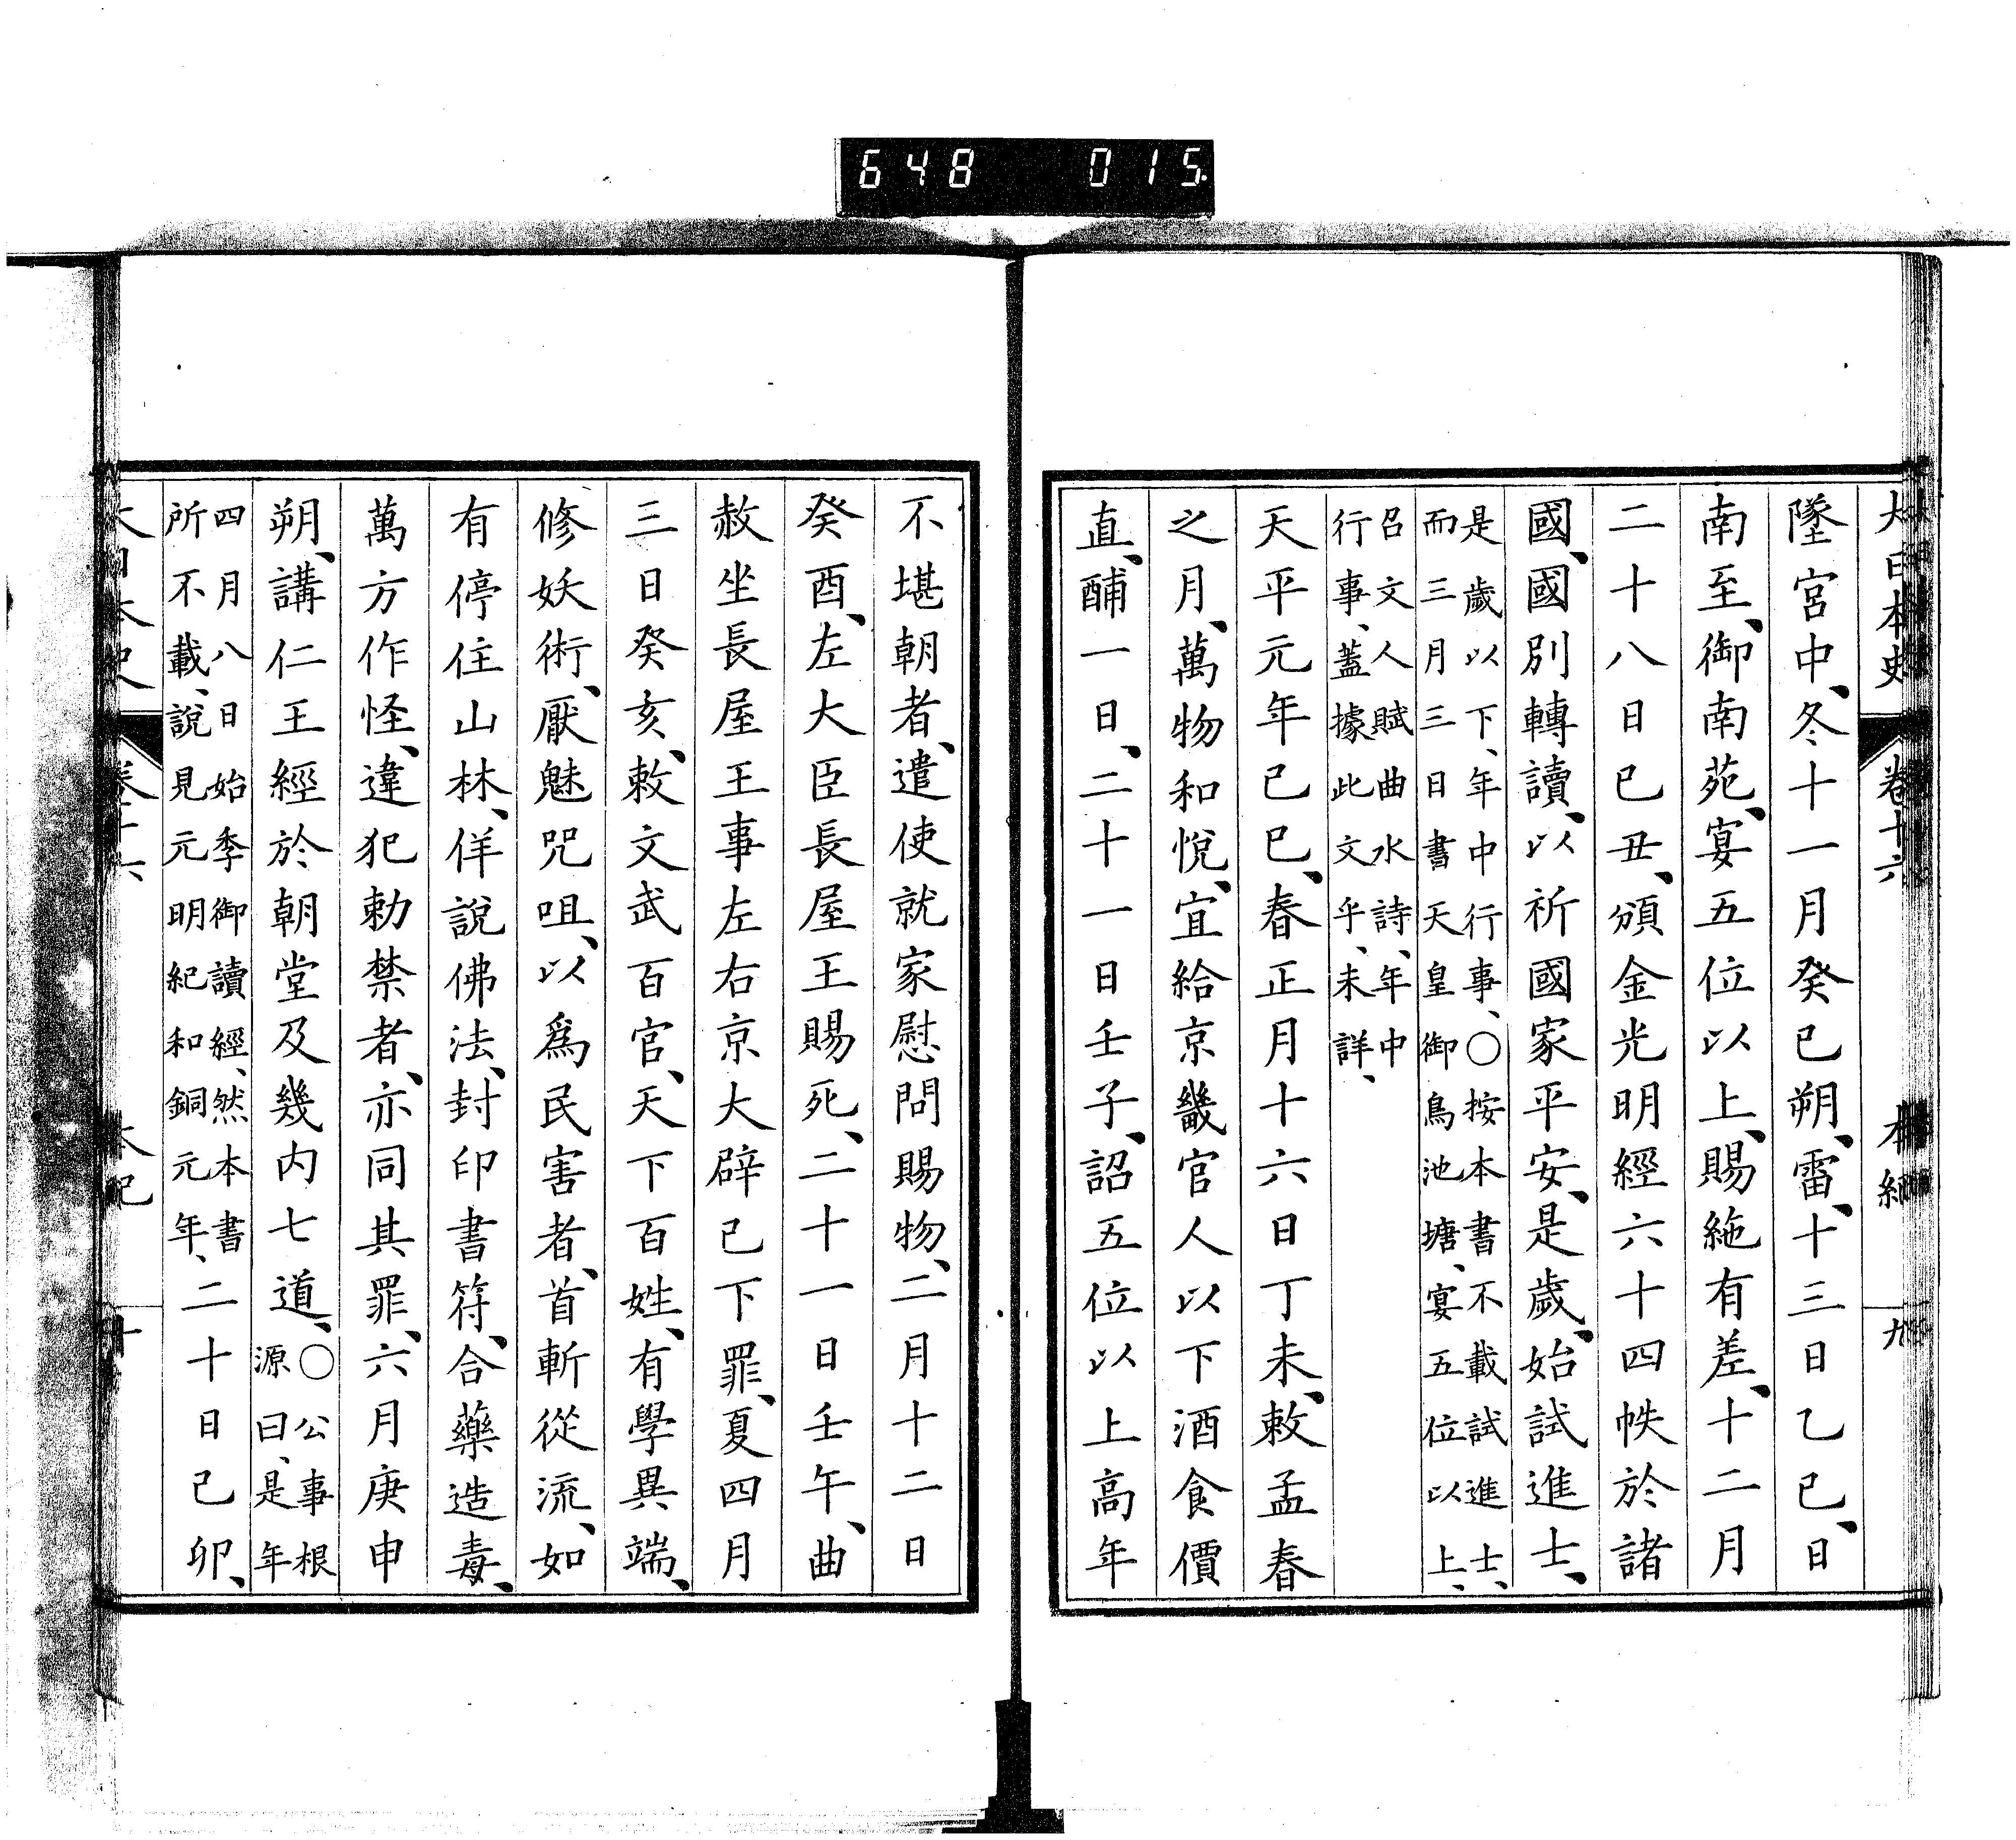 648 015
大日本史 卷十六 本紀 九
墜宮中、冬十一月癸巳朔、雷、十三日乙巳、日
南至、御南苑、宴五位以上、賜絁有差、十二月
二十八日己丑、頒金光明經六十四帙於諸
國、國別轉讀、以祈國家平安、是歲、始試進士、
是歲以下、年中行事、○按本書不載試進士、
而三月三日書天皇御鳥池塘、宴五位以上、
召文人賦曲水詩、年中
行事、蓋據此文乎、未詳、
天平元年己巳、春正月十六日丁未、敕孟春
之月、萬物和悅、宜給京畿官人以下酒食價
直、酺一日、二十一日壬子、詔五位以上高年
不堪朝者、遣使就家慰問賜物、二月十二日
癸酉、左大臣長屋王賜死、二十一日壬午、曲
赦坐長屋王事左右京大辟已下罪、夏四月
三日癸亥、敕文武百官、天下百姓、有學異端、
修妖術、厭魅咒咀、以爲民害者、首斬從流、如
有停住山林、佯說佛法、封印書符、合藥造毒、
萬方作怪、違犯勅禁者、亦同其罪、六月庚申
朔、講仁王經於朝堂及幾内七道、○公事根
源曰、是年
四月八日始季御讀經、然本書
所不載、說見元明紀和銅元年、二十日己卯、
大日本史 卷十六 本紀 十